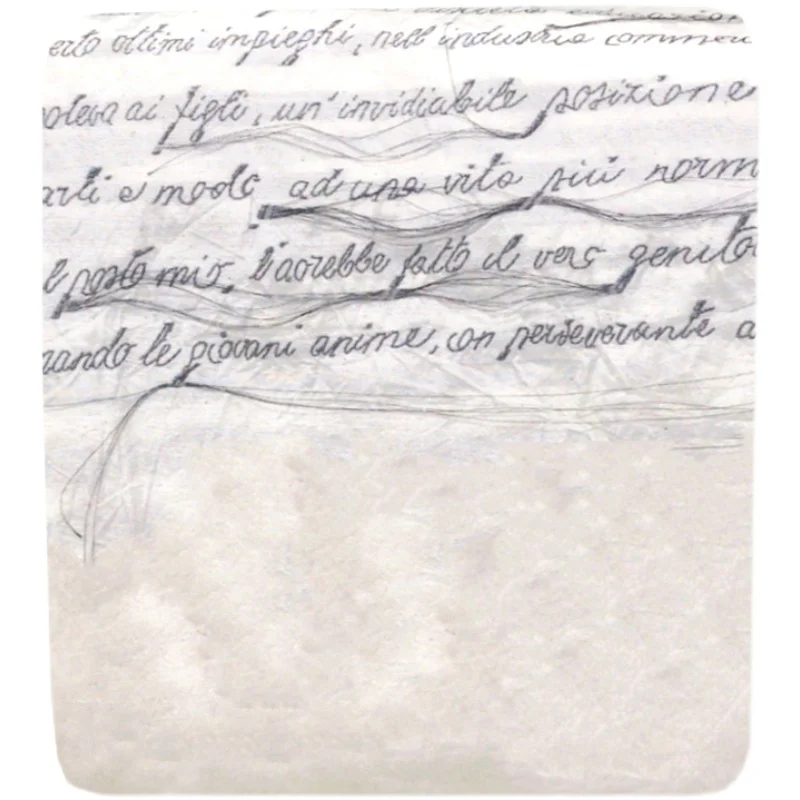 erto ottimi impieghi, nell'industria commer
oleva ai figli, un'invidiabile posizione
arli e modo ad una vita più norm
l posto mio, l'avrebbe fatto il vero genito
nando le giovani anime, con perseverante a